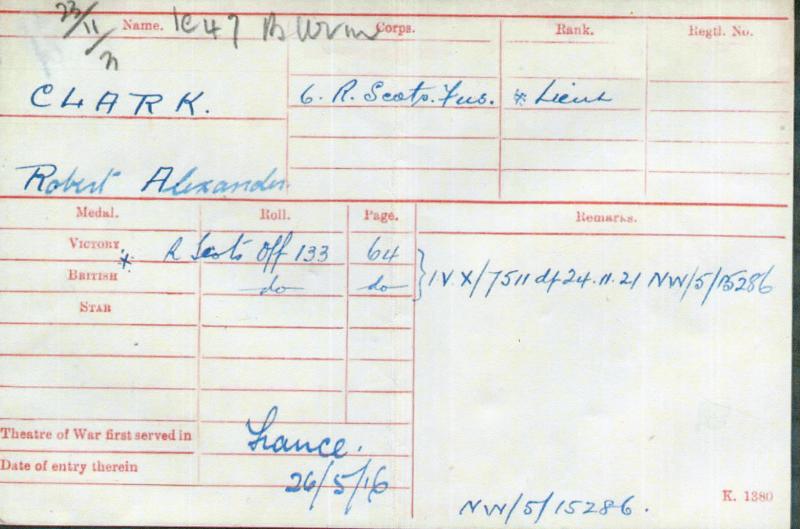 23/11/21
Name. Corps. Rank. Regtl. No.
CLARK. 6. R. Scots. Fus. * Lieut
Robert Alexander
Medal. Roll. Page. Remarks.
VICTORY * R Scots Off 133 64
BRITISH do do } IV. X/7511 df 24.11.21 NW/5/15286
STAR
Theatre of War first served in France.
Date of entry therein 26/5/16
NW/5/15286.
K. 1380